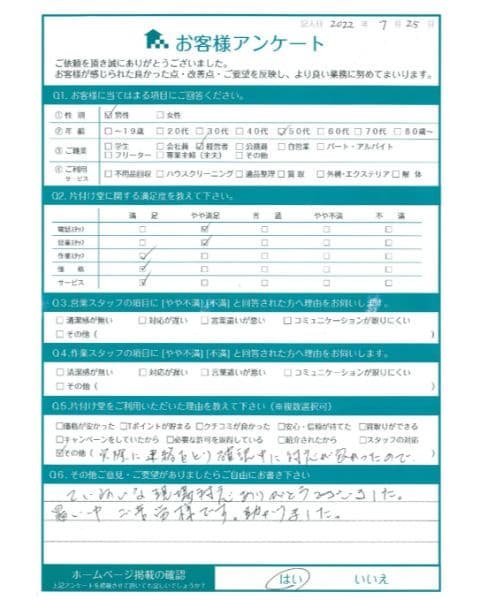 記入日 2022 年 7 月 25 日
お客様アンケート
ご依頼を頂き誠にありがとうございました。
お客様が感じられた良かった点・改善点・ご要望を反映し、より良い業務に努めてまいります。
Q1. お客様に当てはまる項目にご回答ください。
①性 別 ☑男性 □女性
②年 齢 □～19歳 □20代 □30代 □40代 ☑50代 □60代 □70代 □80歳～
③ご職業 □学生 □会社員 ☑経営者 □公務員 □自営業 □パート・アルバイト
□フリーター □専業主婦(主夫) □その他
④ご利用サービス □不用品回収 □ハウスクリーニング □遺品整理 □買取 □外構・エクステリア □解体
Q2. 片付け堂に関する満足度を教えて下さい。
満足 やや満足 普通 やや不満 不満
電話スタッフ □ ☑ □ □ □
営業スタッフ □ ☑ □ □ □
作業スタッフ ☑ □ □ □ □
価格 ☑ □ □ □ □
サービス ☑ □ □ □ □
Q3. 営業スタッフの項目に [やや不満] [不満] と回答された方へ理由をお伺いします。
□清潔感が無い □対応が遅い □言葉遣いが悪い □コミュニケーションが取りにくい
□その他 ( )
Q4. 作業スタッフの項目に [やや不満] [不満] と回答された方へ理由をお伺いします。
□清潔感が無い □対応が遅い □言葉遣いが悪い □コミュニケーションが取りにくい
□その他 ( )
Q5. 片付け堂をご利用いただいた理由を教えて下さい (※複数選択可)
□価格が安かった □Tポイントが貯まる □クチコミが良かった □安心・信頼が持てた □買取りができる
□キャンペーンをしていたから □必要な許可を取得している □紹介されたから □スタッフの対応
☑その他 (実際に連絡をとり確認中に対応が良かったので。
Q6. その他ご意見・ご要望がありましたらご自由にお書き下さい
ていねいな現場対応ありがとうございました。
ご苦労様です。助かりました。
ホームページ掲載の確認
上記アンケートを掲載させて頂いても宜しいでしょうか?
はい いいえ